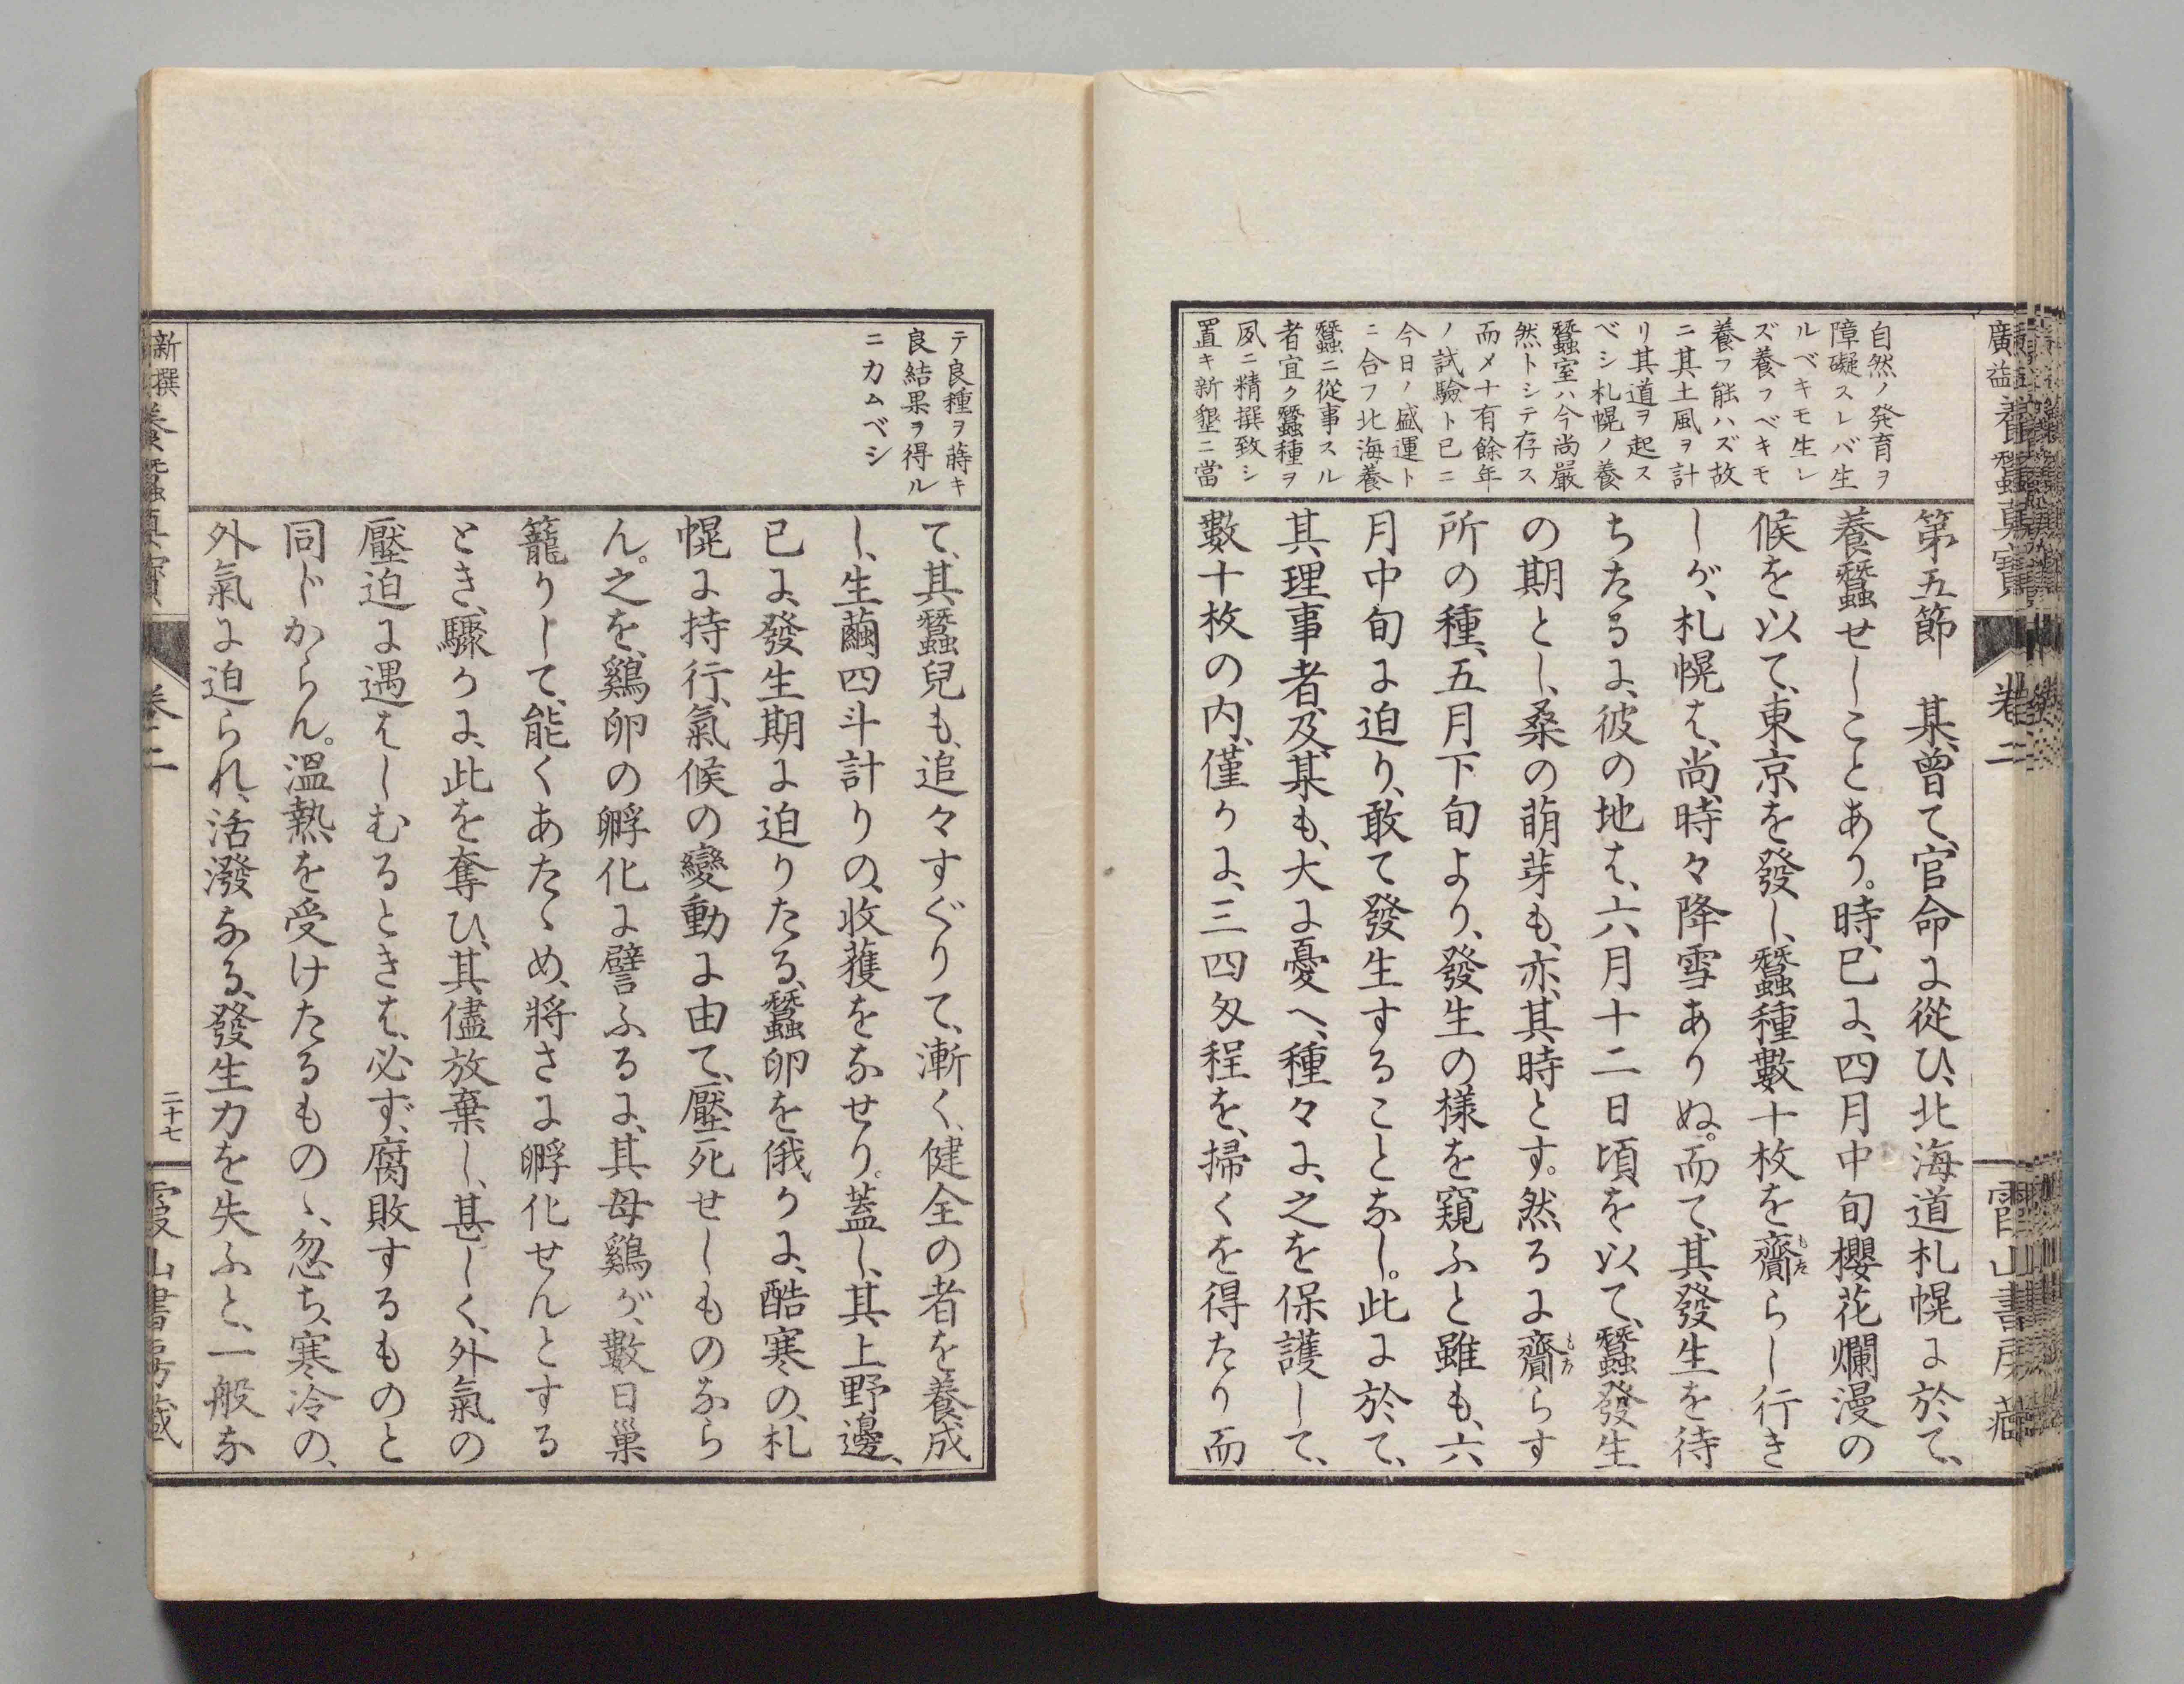 廣益養蠶真寶
卷二
霞山書房藏
自然ノ発育ヲ
障礙スレバ生
ルベキモ生レ
ズ養フベキモ
養フ能ハズ故
ニ其土風ヲ計
リ其道ヲ起ス
ベシ札幌ノ養
蠶室ハ今尚嚴
然トシテ存ス
而メ十有餘年
ノ試驗ト已ニ
今日ノ盛運ト
ニ合フ北海養
蠶ニ從事スル
者宜ク蠶種ヲ
夙ニ精撰致シ
置キ新墾ニ當
第五節　某、曾て、官命に從ひ、北海道札幌に於て、
養蠶せしことあり。時、已に、四月中旬櫻花爛漫の
候を以て、東京を發し、蠶種數十枚を齎らし行き
しが、札幌は、尚、時々降雪ありぬ。而て、其發生を待
ちたるに、彼の地は、六月十二日頃を以て、蠶發生
の期とし、桑の萌芽も、亦、其時とす。然るに齎らす
所の種、五月下旬より、發生の樣を窺ふと雖も、六
月中旬に迫り、敢て發生することなし。此に於て、
其理事者、及、某も、大に憂へ、種々に、之を保護して、
數十枚の内、僅かに、三四匁程を、掃くを得たり而
テ良種ヲ蒔キ
良結果ヲ得ル
ニカムベシ
て、其蠶兒も、追々すぐりて、漸く、健全の者を養成
し、生繭四斗計りの、收獲をなせり。蓋し、其上野邊、
已に、發生期に迫りたる、蠶卵を俄かに、酷寒の、札
幌に持行、氣候の變動に由て、壓死せしものなら
ん。之を、鷄卵の孵化に譬ふるに、其母鷄が、數日巢
籠りして、能くあたゝめ、將さに孵化せんとする
とき、驟かに、此を奪ひ、其儘放棄し、甚しく、外氣の
壓迫に遇はしむるときは、必ず、腐敗するものと
同じからん。溫熱を受けたるものゝ、忽ち、寒冷の、
外氣に迫られ、活潑なる、發生力を失ふと、一般な
新撰養蠶真寶
卷二
二十七
霞山書房藏